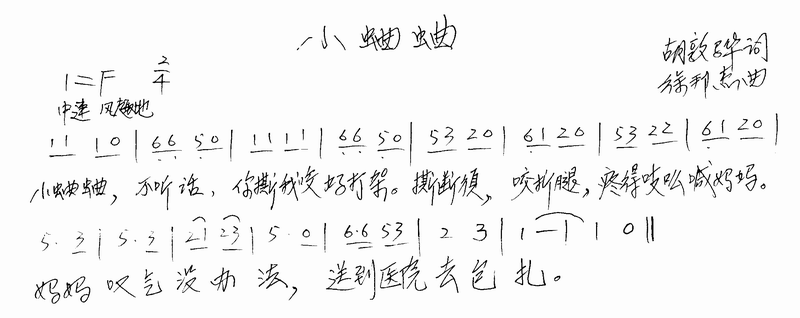 小蛐蛐
胡敦骅词
1=F 2/4 徐邦杰曲
中速 风趣地
11 10 | 66 50 | 11 11 | 66 50 | 53 20 | 61 20 | 53 22 | 61 20 |
小蛐蛐，不听话，你撕我咬好打架。撕断须，咬折腿，疼得吱吱喊妈妈。
5. 3 | 5. 3 | 21 23 | 5. 0 | 6.6 53 | 2 3 | 1 — | 1 0 ‖
妈妈叹气没办法，送到医院去包扎。